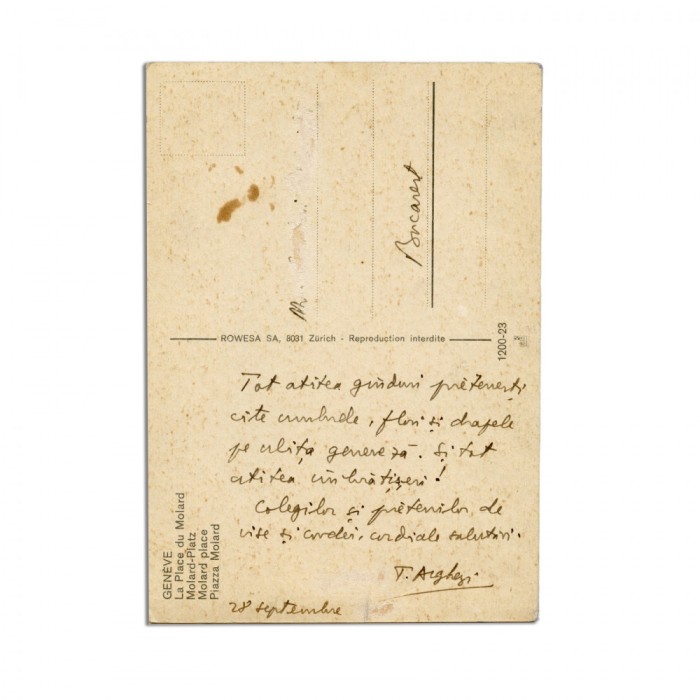 Bucarest
ROWESA SA, 8031 Zürich - Reproduction interdite
1200-23
Tot atîtea gînduri prietenești
cîte umbrele, flori și drapele
pe ulița genereză. Și tot
atîtea îmbrățișeri!
Colegilor și prietenilor de
vise și condei, cordiale salutări.
T. Arghezi
28 septembrie
GENÈVE
La Place du Molard
Molard-Platz
Molard place
Piazza Molard